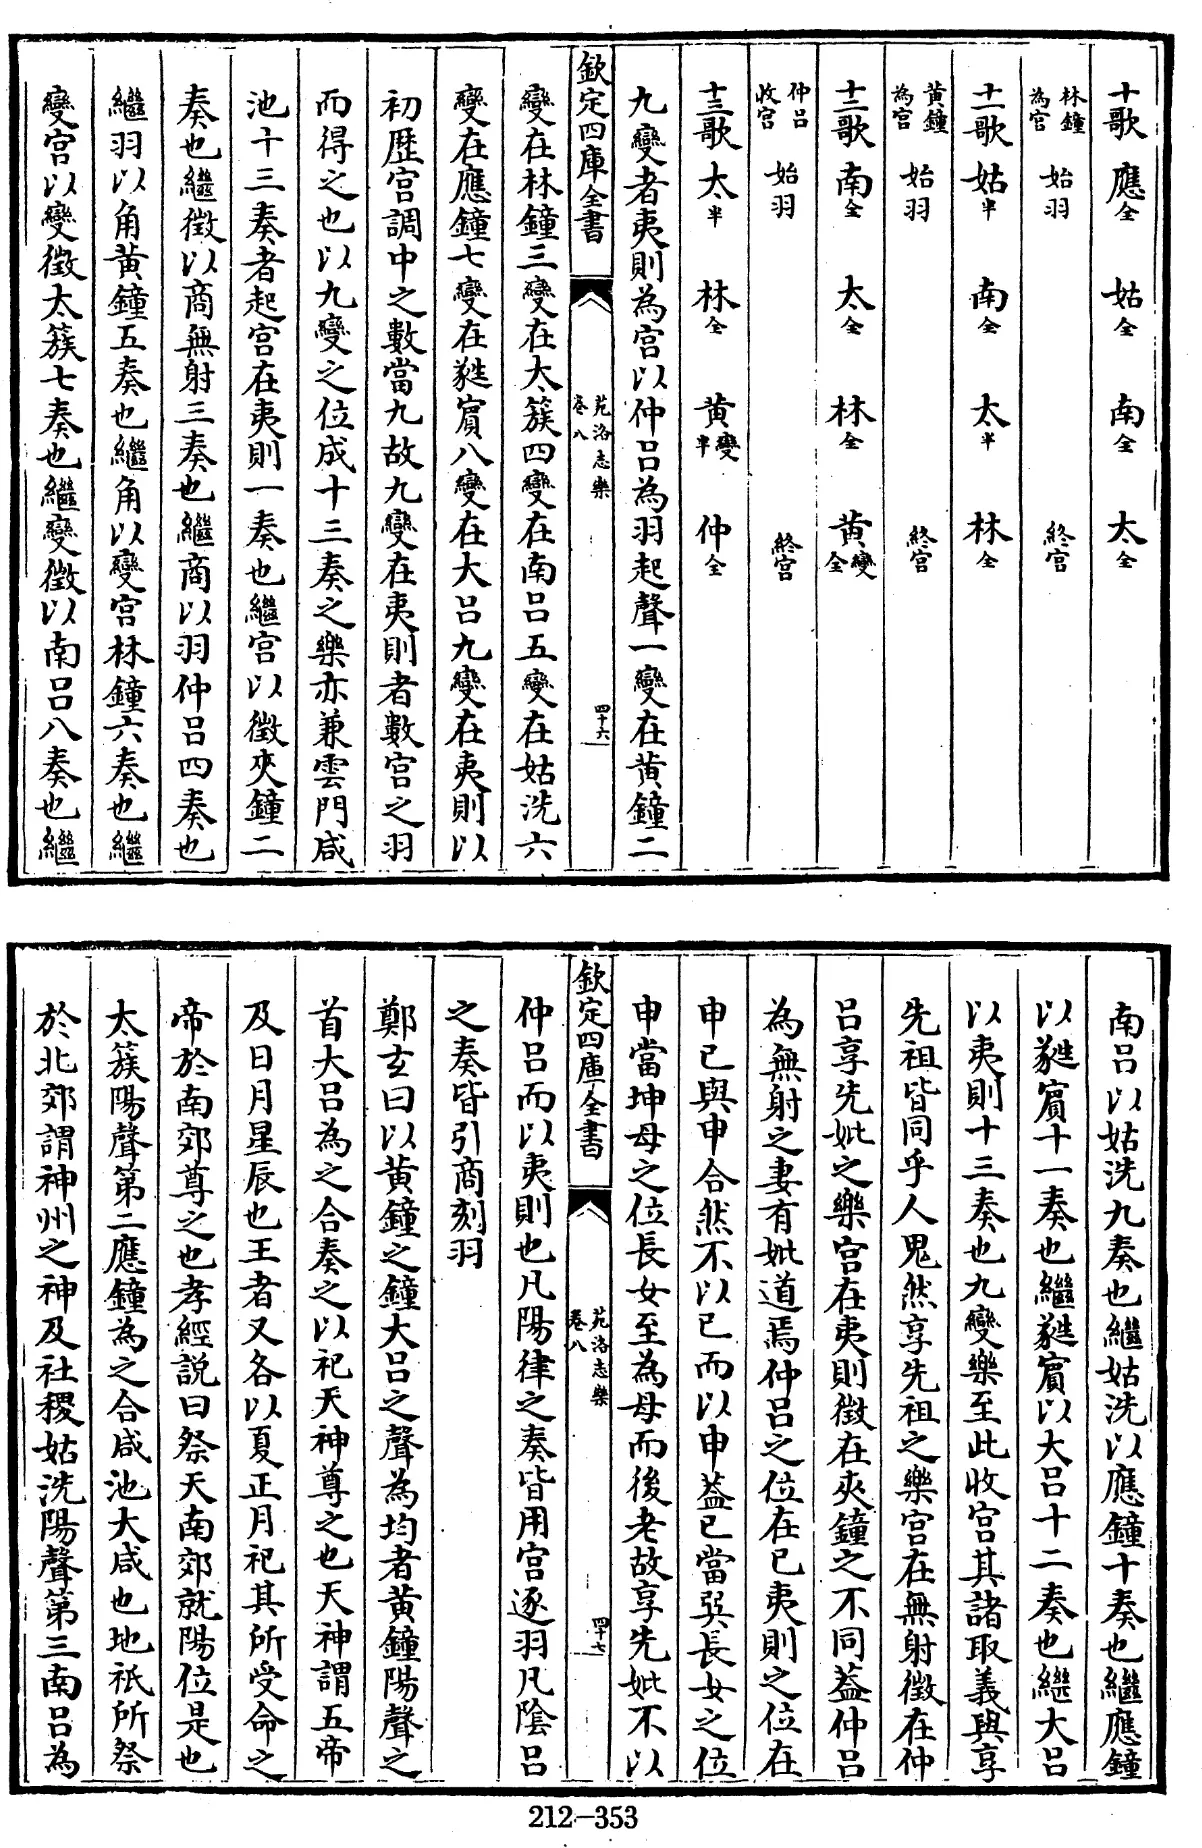 十歌 應全 姑全 南全 太全
林鐘為宮 始羽 終宮
十一歌 姑半 南全 太半 林全
黃鐘為宮 始羽 終宮
十二歌 南全 太全 林全 黃變全
仲呂收宮 始羽 終宮
十三歌 太半 林全 黃變半 仲全
九變者夷則為宮以仲呂為羽起聲一變在黃鐘二
欽定四庫全書 苑洛志樂 卷八 四十六
變在林鐘三變在太簇四變在南呂五變在姑洗六
變在應鐘七變在蕤賓八變在大呂九變在夷則以
初歴宮調中之數當九故九變在夷則者數宮之羽
而得之也以九變之位成十三奏之樂亦兼雲門咸
池十三奏者起宮在夷則一奏也繼宮以徵夾鐘二
奏也繼徵以商無射三奏也繼商以羽仲呂四奏也
繼羽以角黃鐘五奏也繼角以變宮林鐘六奏也繼
變宮以變徵太簇七奏也繼變徵以南呂八奏也繼
南呂以姑洗九奏也繼姑洗以應鐘十奏也繼應鐘
以蕤賓十一奏也繼蕤賓以大呂十二奏也繼大呂
以夷則十三奏也九變樂至此收宮其諸取義與享
先祖皆同乎人鬼然享先祖之樂宮在無射徵在仲
呂享先妣之樂宮在夷則徵在夾鐘之不同葢仲呂
為無射之妻有妣道焉仲呂之位在巳夷則之位在
申巳與申合然不以巳而以申葢巳當巽長女之位
申當坤母之位長女至為母而後老故享先妣不以
欽定四庫全書 苑洛志樂 卷八 四十七
仲呂而以夷則也凡陽律之奏皆用宮逐羽凡陰呂
之奏皆引商刻羽
鄭玄曰以黃鐘之鐘大呂之聲為均者黃鐘陽聲之
首大呂為之合奏之以祀天神尊之也天神謂五帝
及日月星辰也王者又各以夏正月祀其所受命之
帝於南郊尊之也孝經説曰祭天南郊就陽位是也
太簇陽聲第二應鐘為之合咸池大咸也地祇所祭
於北郊謂神州之神及社稷姑洗陽聲第三南呂為
212-353